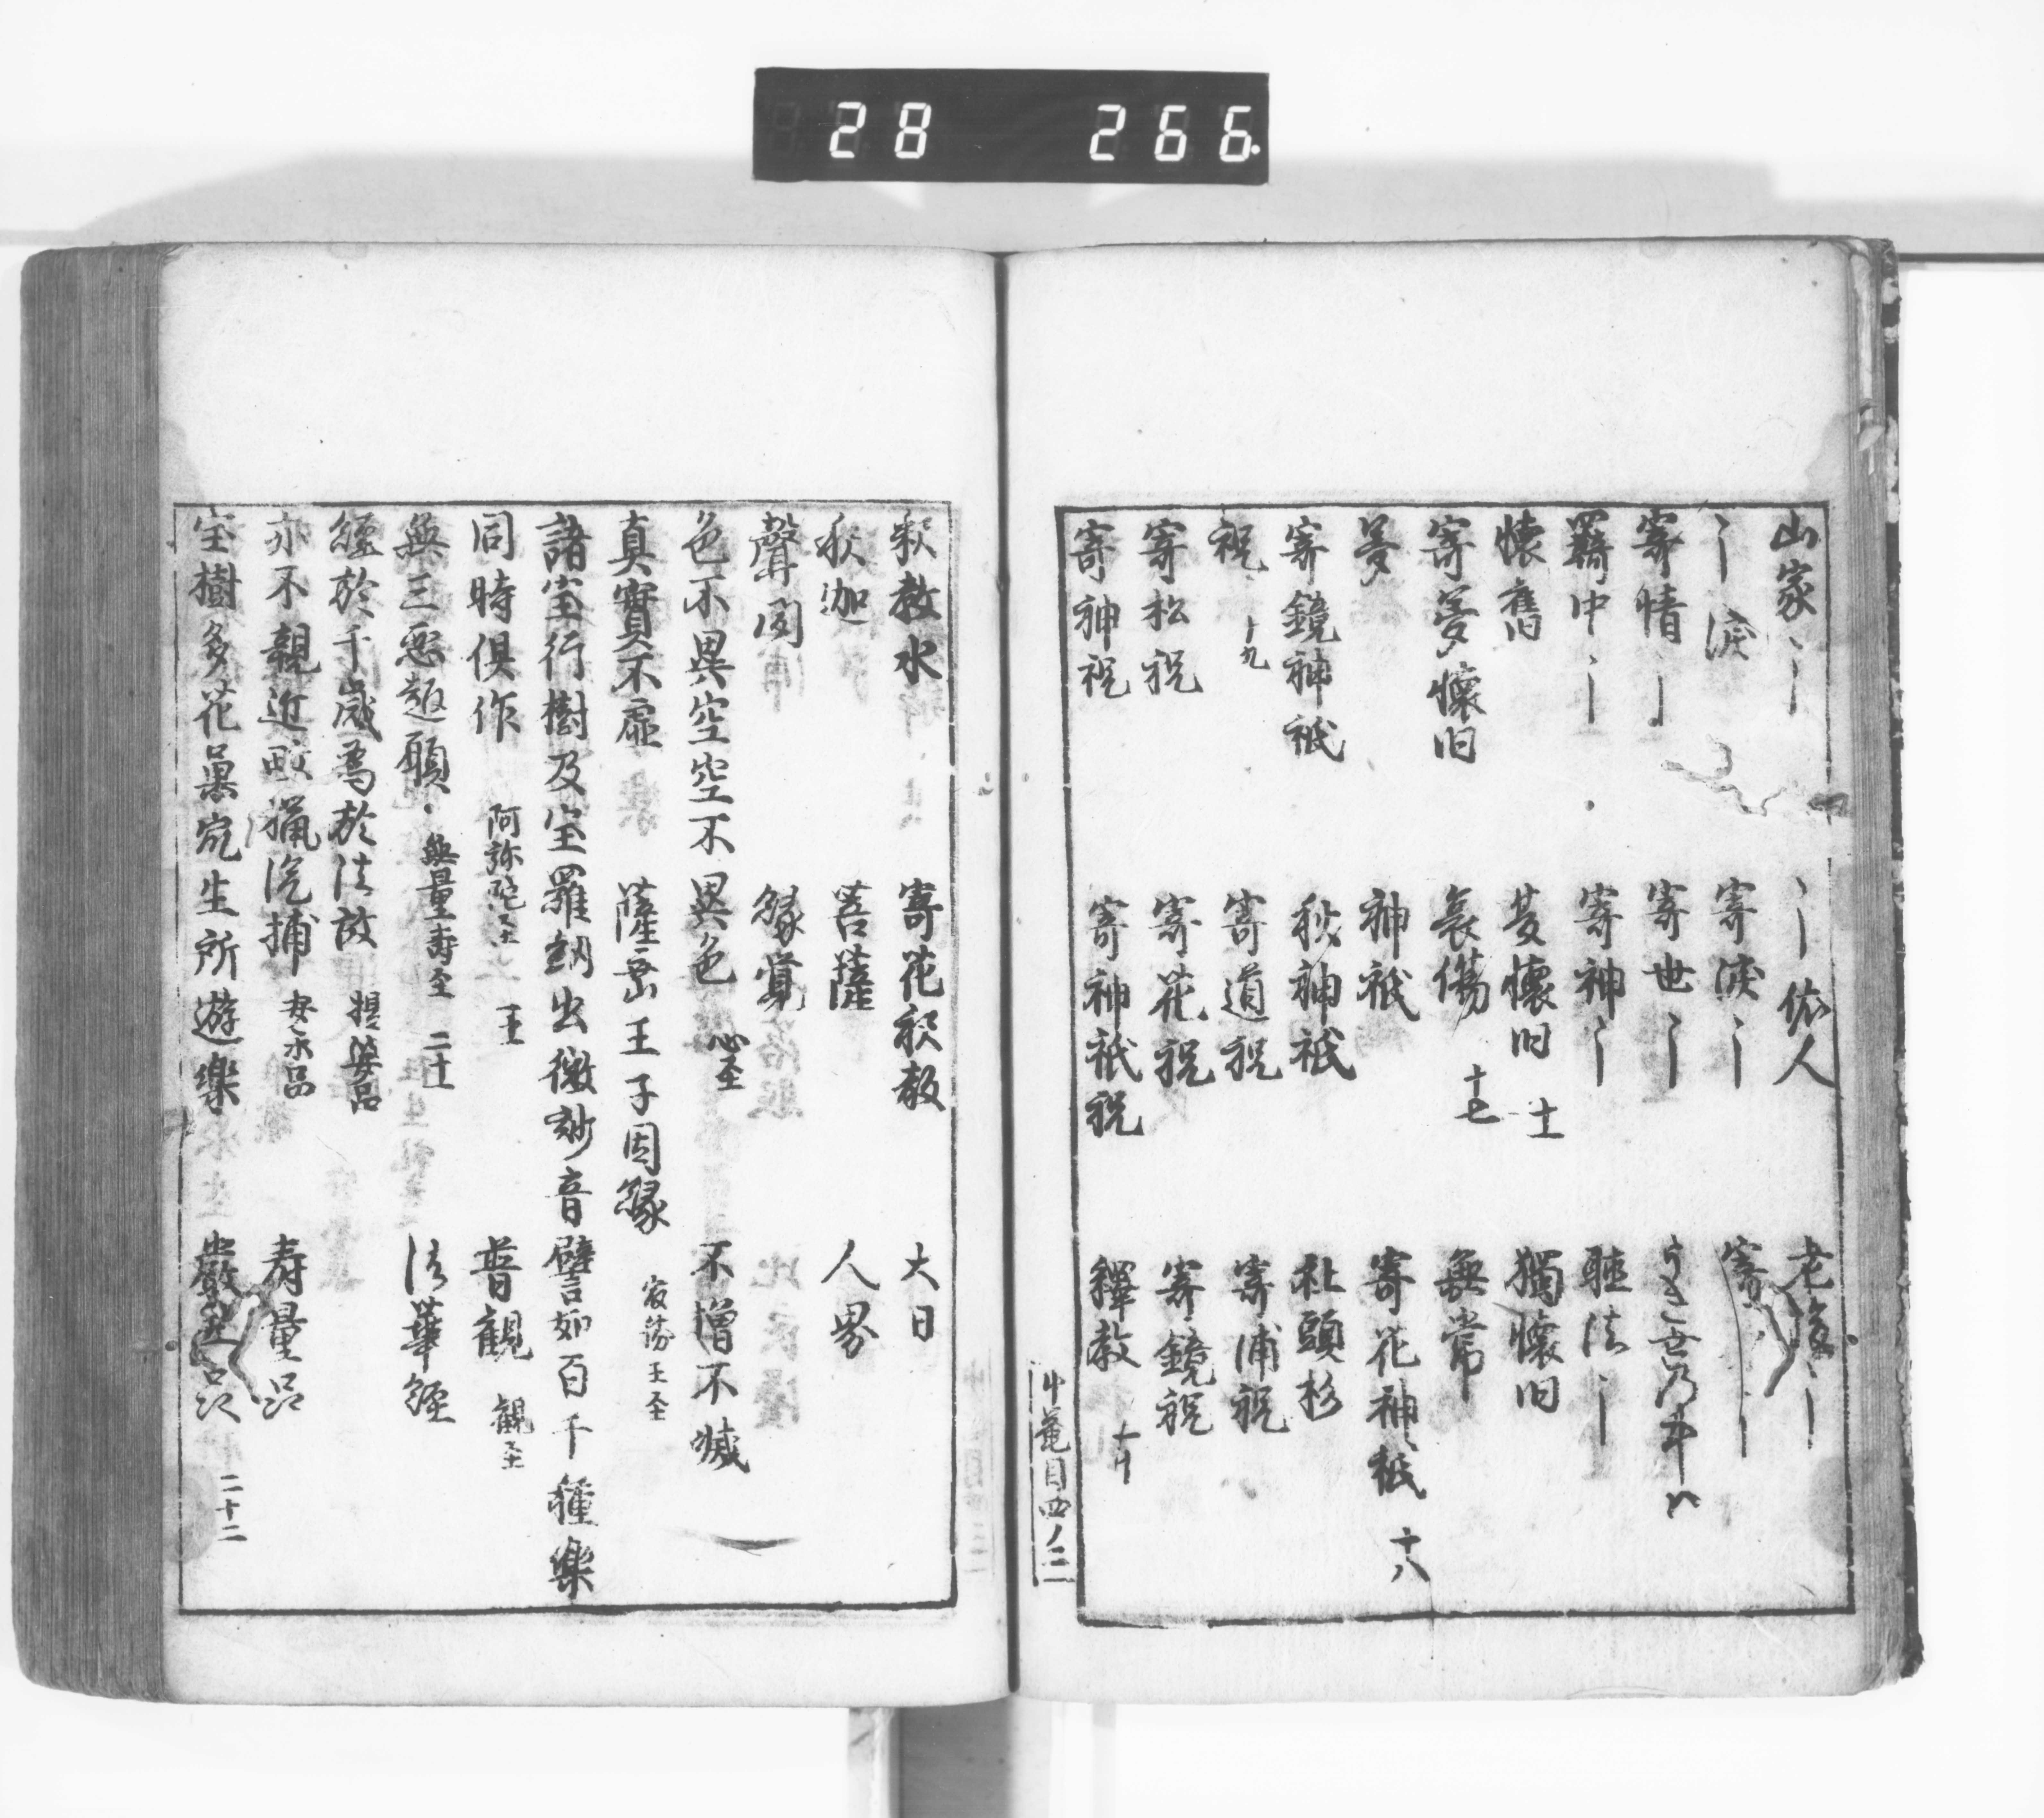 28 266
山家〻〡 〻〡依人 老後〻〡
〻〡涙 寄涙〻〡 寄〻〡
寄情〻〡 寄世〻〡
羇中〻〡 寄神〻〡 聴法〻〡
懐舊 夢懐旧 十一 獨懐旧
寄夢懐旧 哀傷 十七 無常
夢 神祇 寄花神祇 十八
寄鏡神祇 秋神祇 社頭杉
祝 十九 寄道祝 寄浦祝
寄松祝 寄花祝 寄鏡祝
寄神祝 寄神祇祝 釋教 二十
草菴目四ノ二
釈教水 寄花釈教 大日
釈迦 菩薩 人界
聲聞 縁覚
色不異空空不異色 心至 不増不滅
真實不虚 薩埵王子因縁
諸宝行樹及宝羅網出微妙音譬如百千種樂
同時倶作 阿弥陀至 普観 観至
無三悪趣願 無量寿至 二十一 法華経
経於千歳為於法故 提婆品
亦不親近畋猟漁捕 安楽品 寿量品
宝樹多花菓衆生所遊樂 嚴王品 二十二